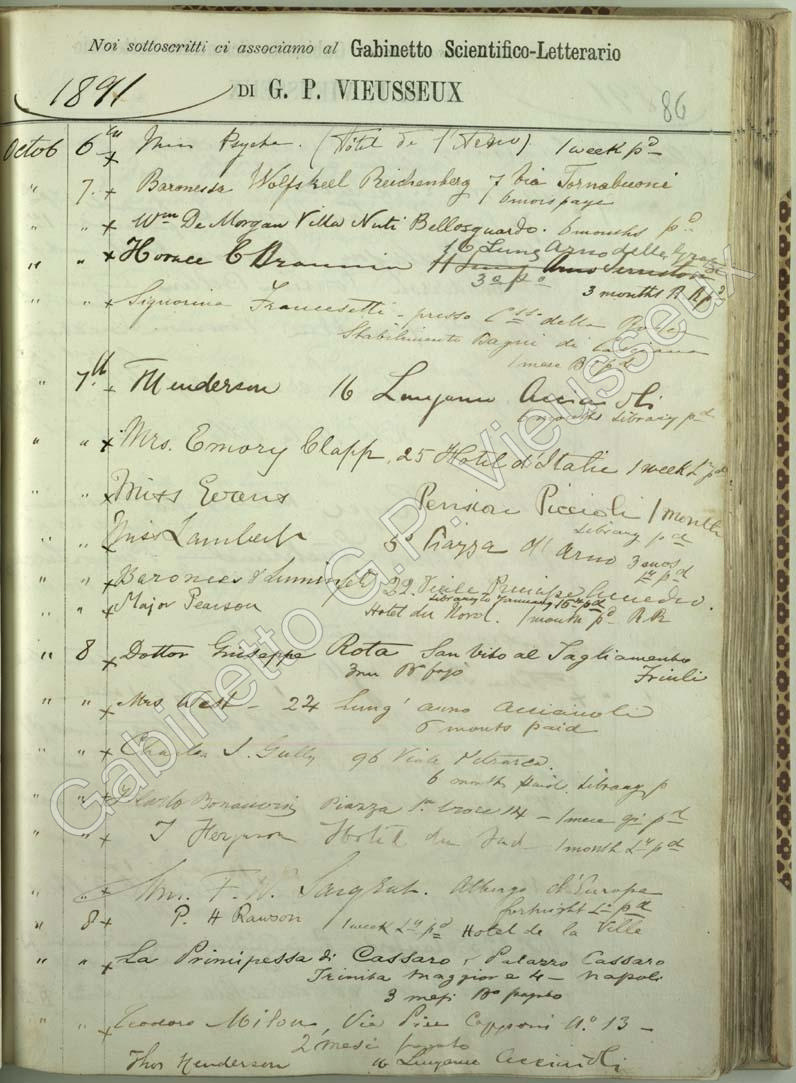 Noi sottoscritti ci associamo al Gabinetto Scientifico-Letterario
1891 DI G. P. VIEUSSEUX 86
Octob 6 x Miss Psyche. (Hôtel de l'Arno) 1 week pd
" 7. x Baronessa Wolfskeel Reichenberg 7 Via Tornabuoni
6 mois payé
" " x Wm De Morgan Villa Nuti Bellosguardo. 6 months pd
16 Lung Arno della
" " x Horace E
3o po
3 months R R pd
" " x Signorina Francesetti - presso della
Stabilimento Bagni di Casciana
1 mese
" 7th x THenderson 16 Lungarno Acciaioli
6 months Library pd
" " x Mrs. Emory Clapp, 25 Hotel d'Italie 1 week Ly pd
" " x Miss Evans Pension Piccioli 1 month
Library pd
" " x Miss Lambert 5 Piazza d'Arno 3 mos
Ly pd
" " x Baroness 22 Viale Principe Amedeo.
Library to January 15th pd
" " x Major Pearson Hotel du Nord. 1 month pd RR
" 8 x Dottor Giuseppe Rota San Vito al Tagliamento
Friuli
" " x Mrs West - 24 Lung' arno acciaioli
6 monts paid
" " x Charles J. Gully 96 Viale Petrarca.
6 months paid. Library p
" " x Carlo Piazza 14 - 1 mese pd
" " x J Ferguson Hotel du Sud - 1 month Ly pd
" " x F. W. Sargent. Albergo d'Europe
fortnight Ly pd
" 8 x P. H Rawson 1 week Ly pd Hotel de la Ville
" " x La Principessa di Cassaro, Palazzo Cassaro
Trinita Maggiore 4 - Napoli
3 mesi
" " x Teodoro Milon, Via Pier Capponi No 13 -
2 mesi pagato
Thos Henderson 16 Lungarno Acciaioli
Gabinetto G.P. Vieusseux